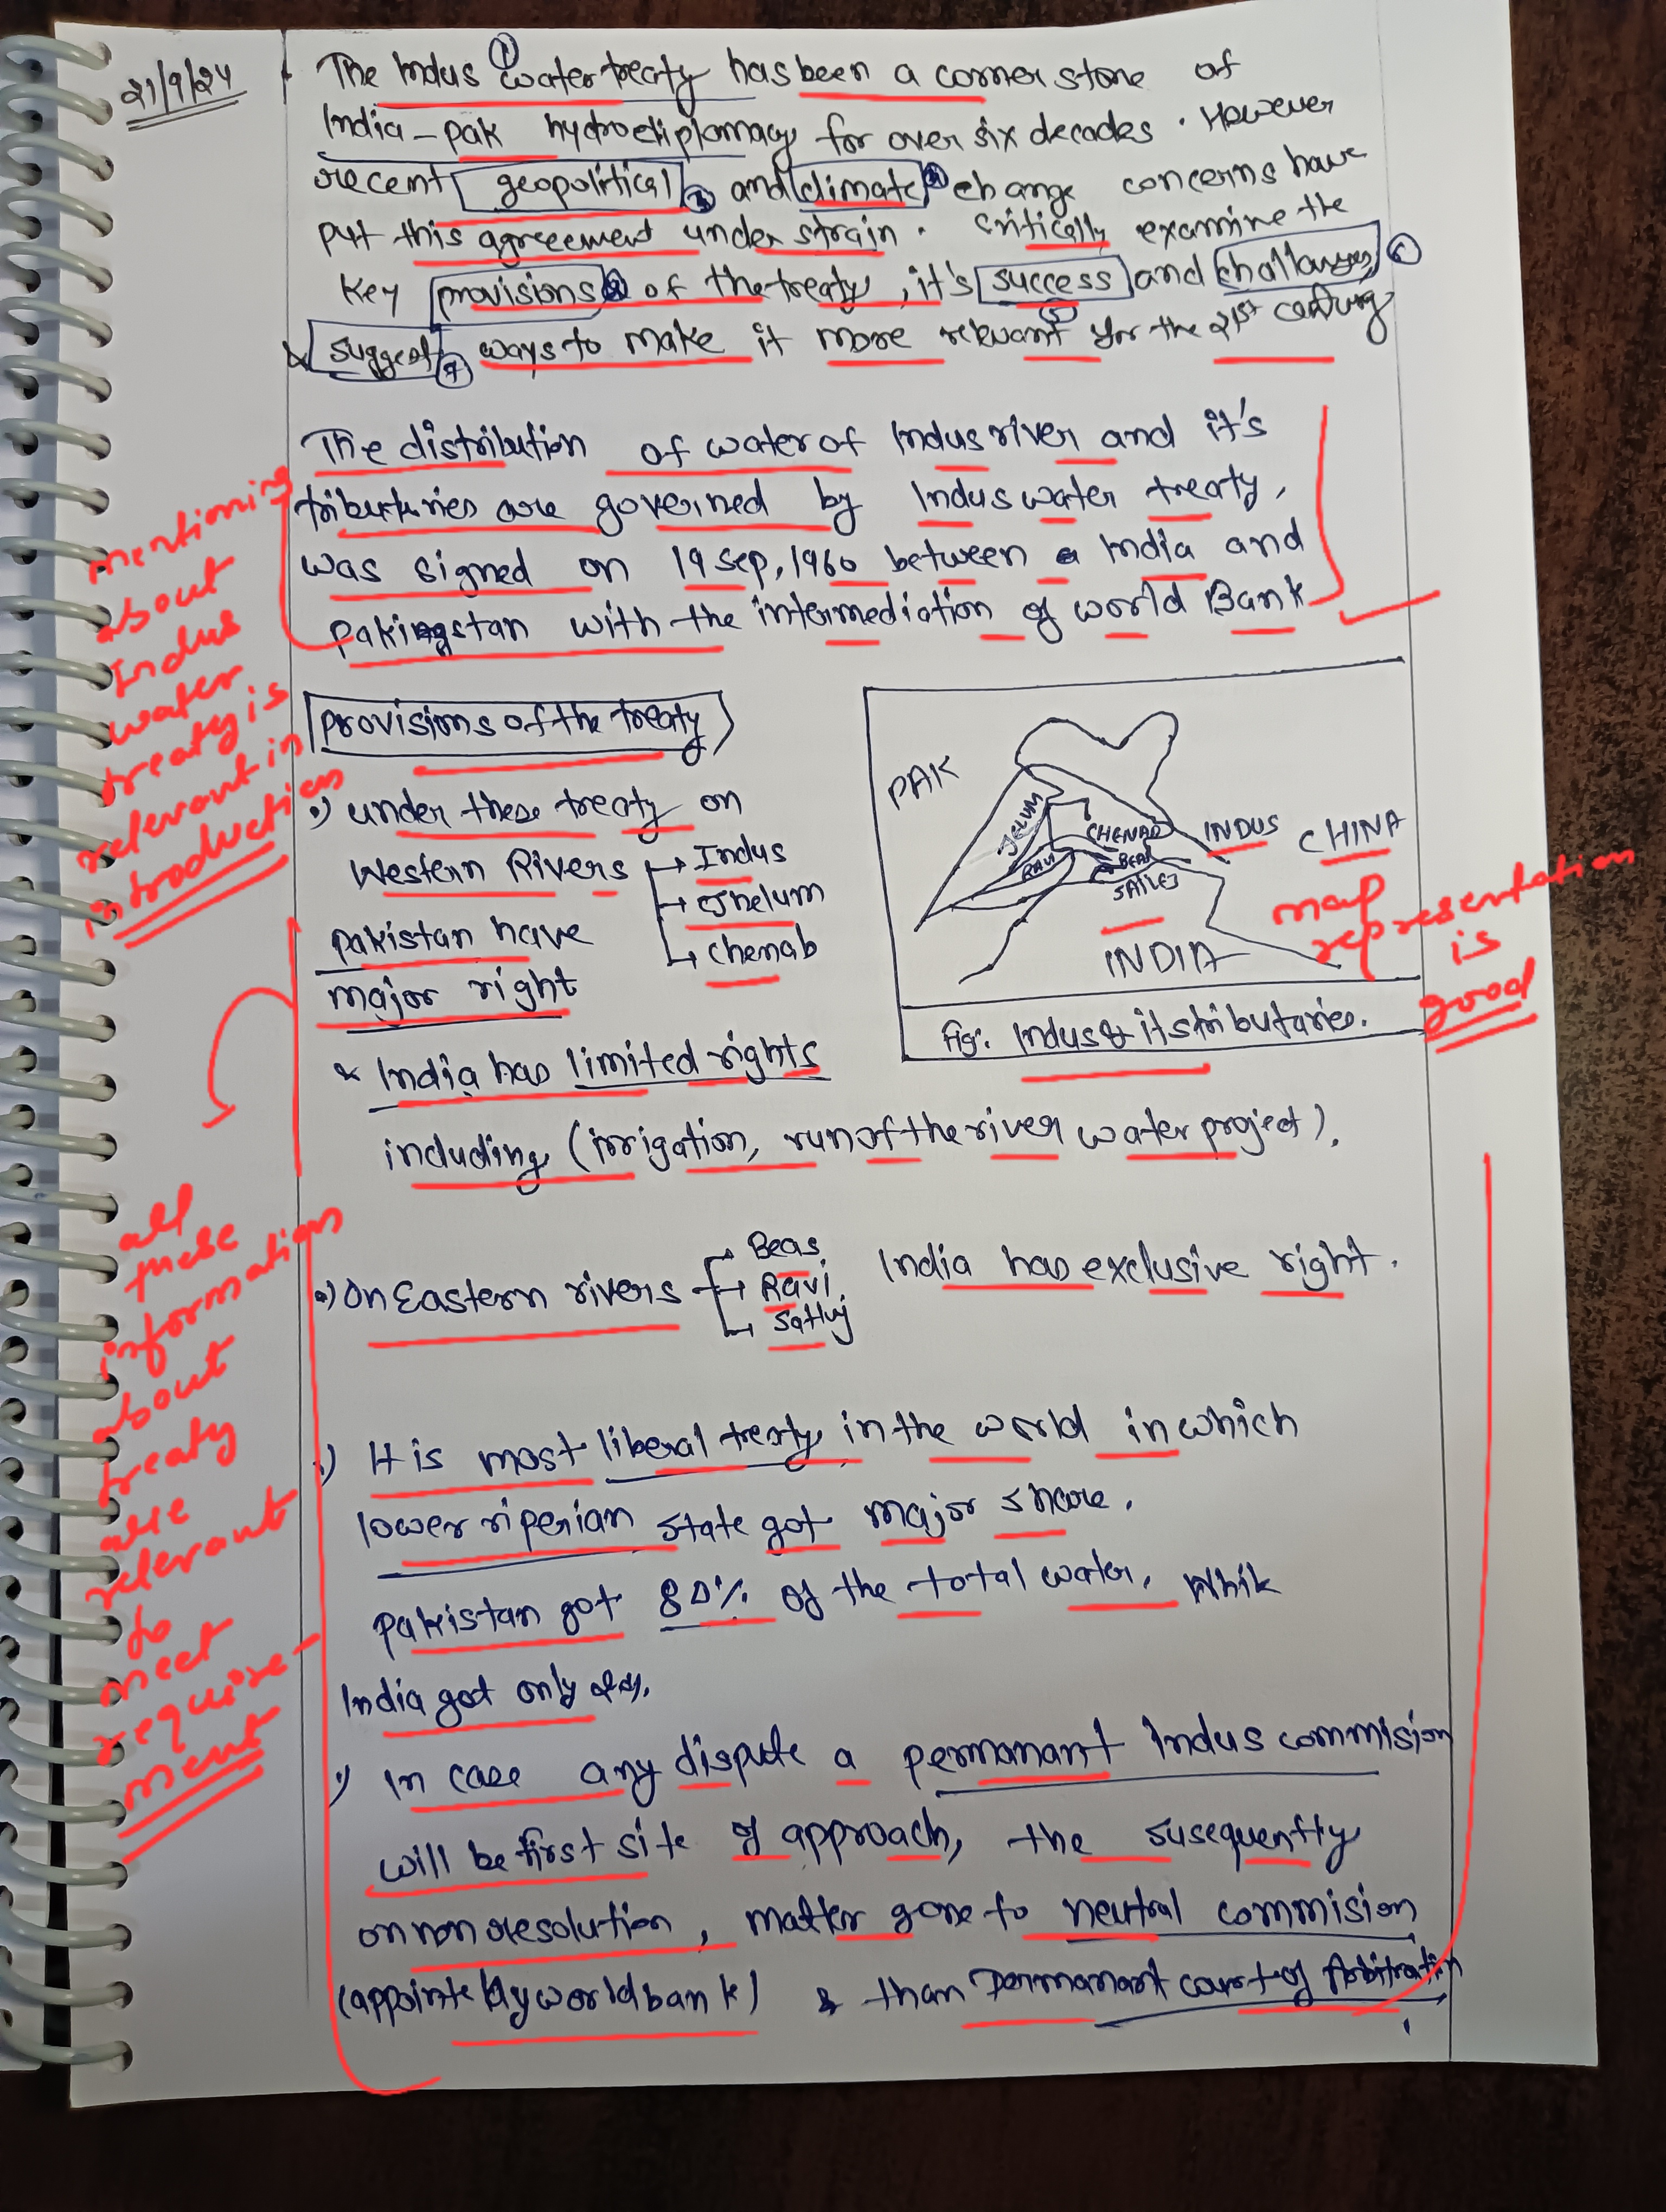 21/9/24
The Indus ① water treaty has been a corner stone of
India-pak hydrodiplomacy for over six decades. However
recent geopolitical and climate change concerns have
put this agreement under strain. Critically examine the
Key provisions of the treaty, it's success and challanges
& suggest ways to make it more relevant for the 21st century
The distribution of water of Indus river and it's
tributuries are governed by Indus water treaty,
was signed on 19 sep, 1960 between a India and
pakingstan with the intermediation of world Bank
mentioning
about
Indus
water
treaty is
relevant in
introduction
provisions of the treaty
•) under these treaty on
Western Rivers → Indus
→ Jhelum
→ Chenab
pakistan have
major right
& India has limited rights
including (irrigation, run of the river water project).
PAK
JELUM
CHENAB
RAVI
BEAS
SATLEJ
INDUS
CHINA
INDIA
Fig: Indus & its tributaries.
map
representation
is
good
•) On Eastern rivers → Beas
→ Ravi
→ Satluj
India has exclusive right.
•) It is most liberal treaty in the world in which
lower riperian state got major share.
pakistan got 80% of the total water, While
India got only
•) In case any dispute a permanant Indus commision
will be first site of approach, the susequently
on non resolution, matter gone to neutral commision
(appointe by world bank) & than permanant court of Arbitration
all
these
information
about
treaty
are
relevant
to
meet
require-
ment